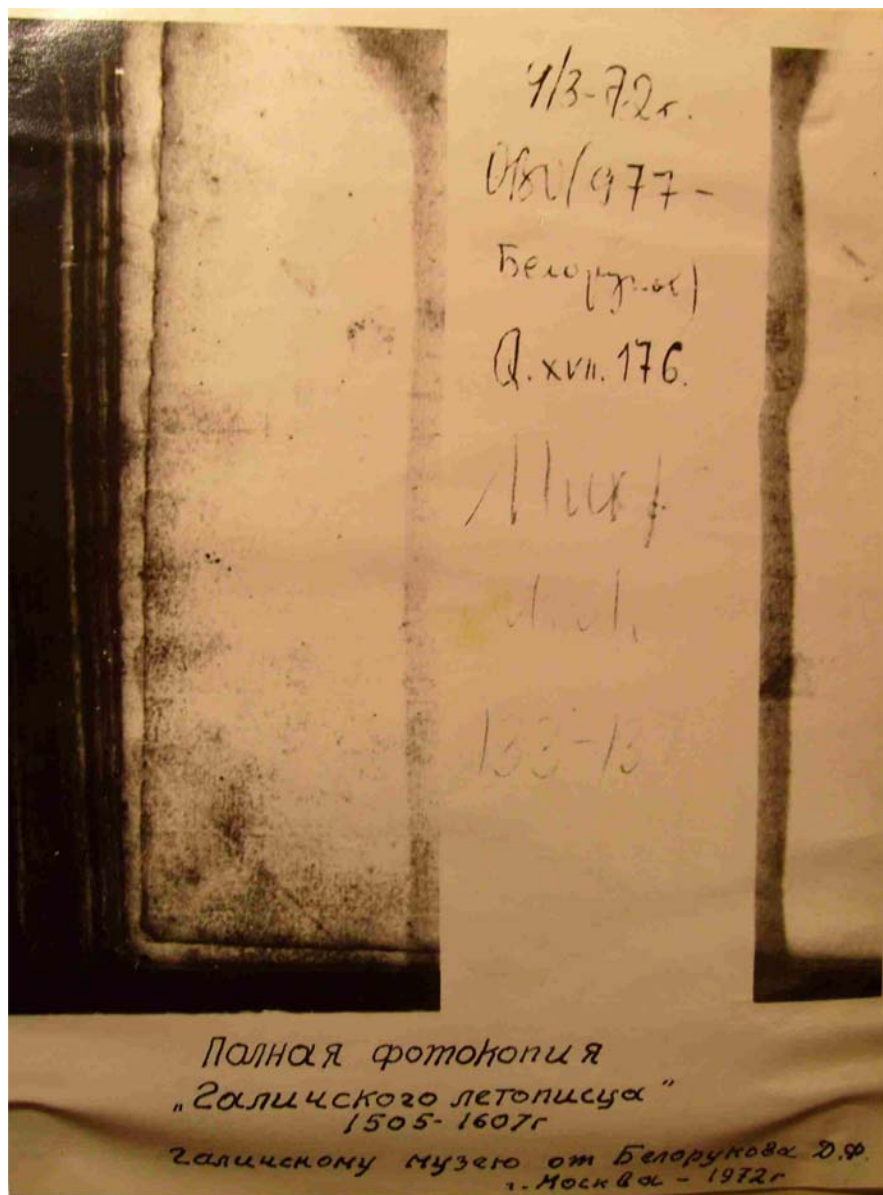 1/3-72г.
977-
Белоруков)
Q. XVII. 176.
133-13
Полная фотокопия
„Галичского летописца"
1505-1607г
Галичскому музею от Белорукова Д.Ф.
г. Москва - 1972г